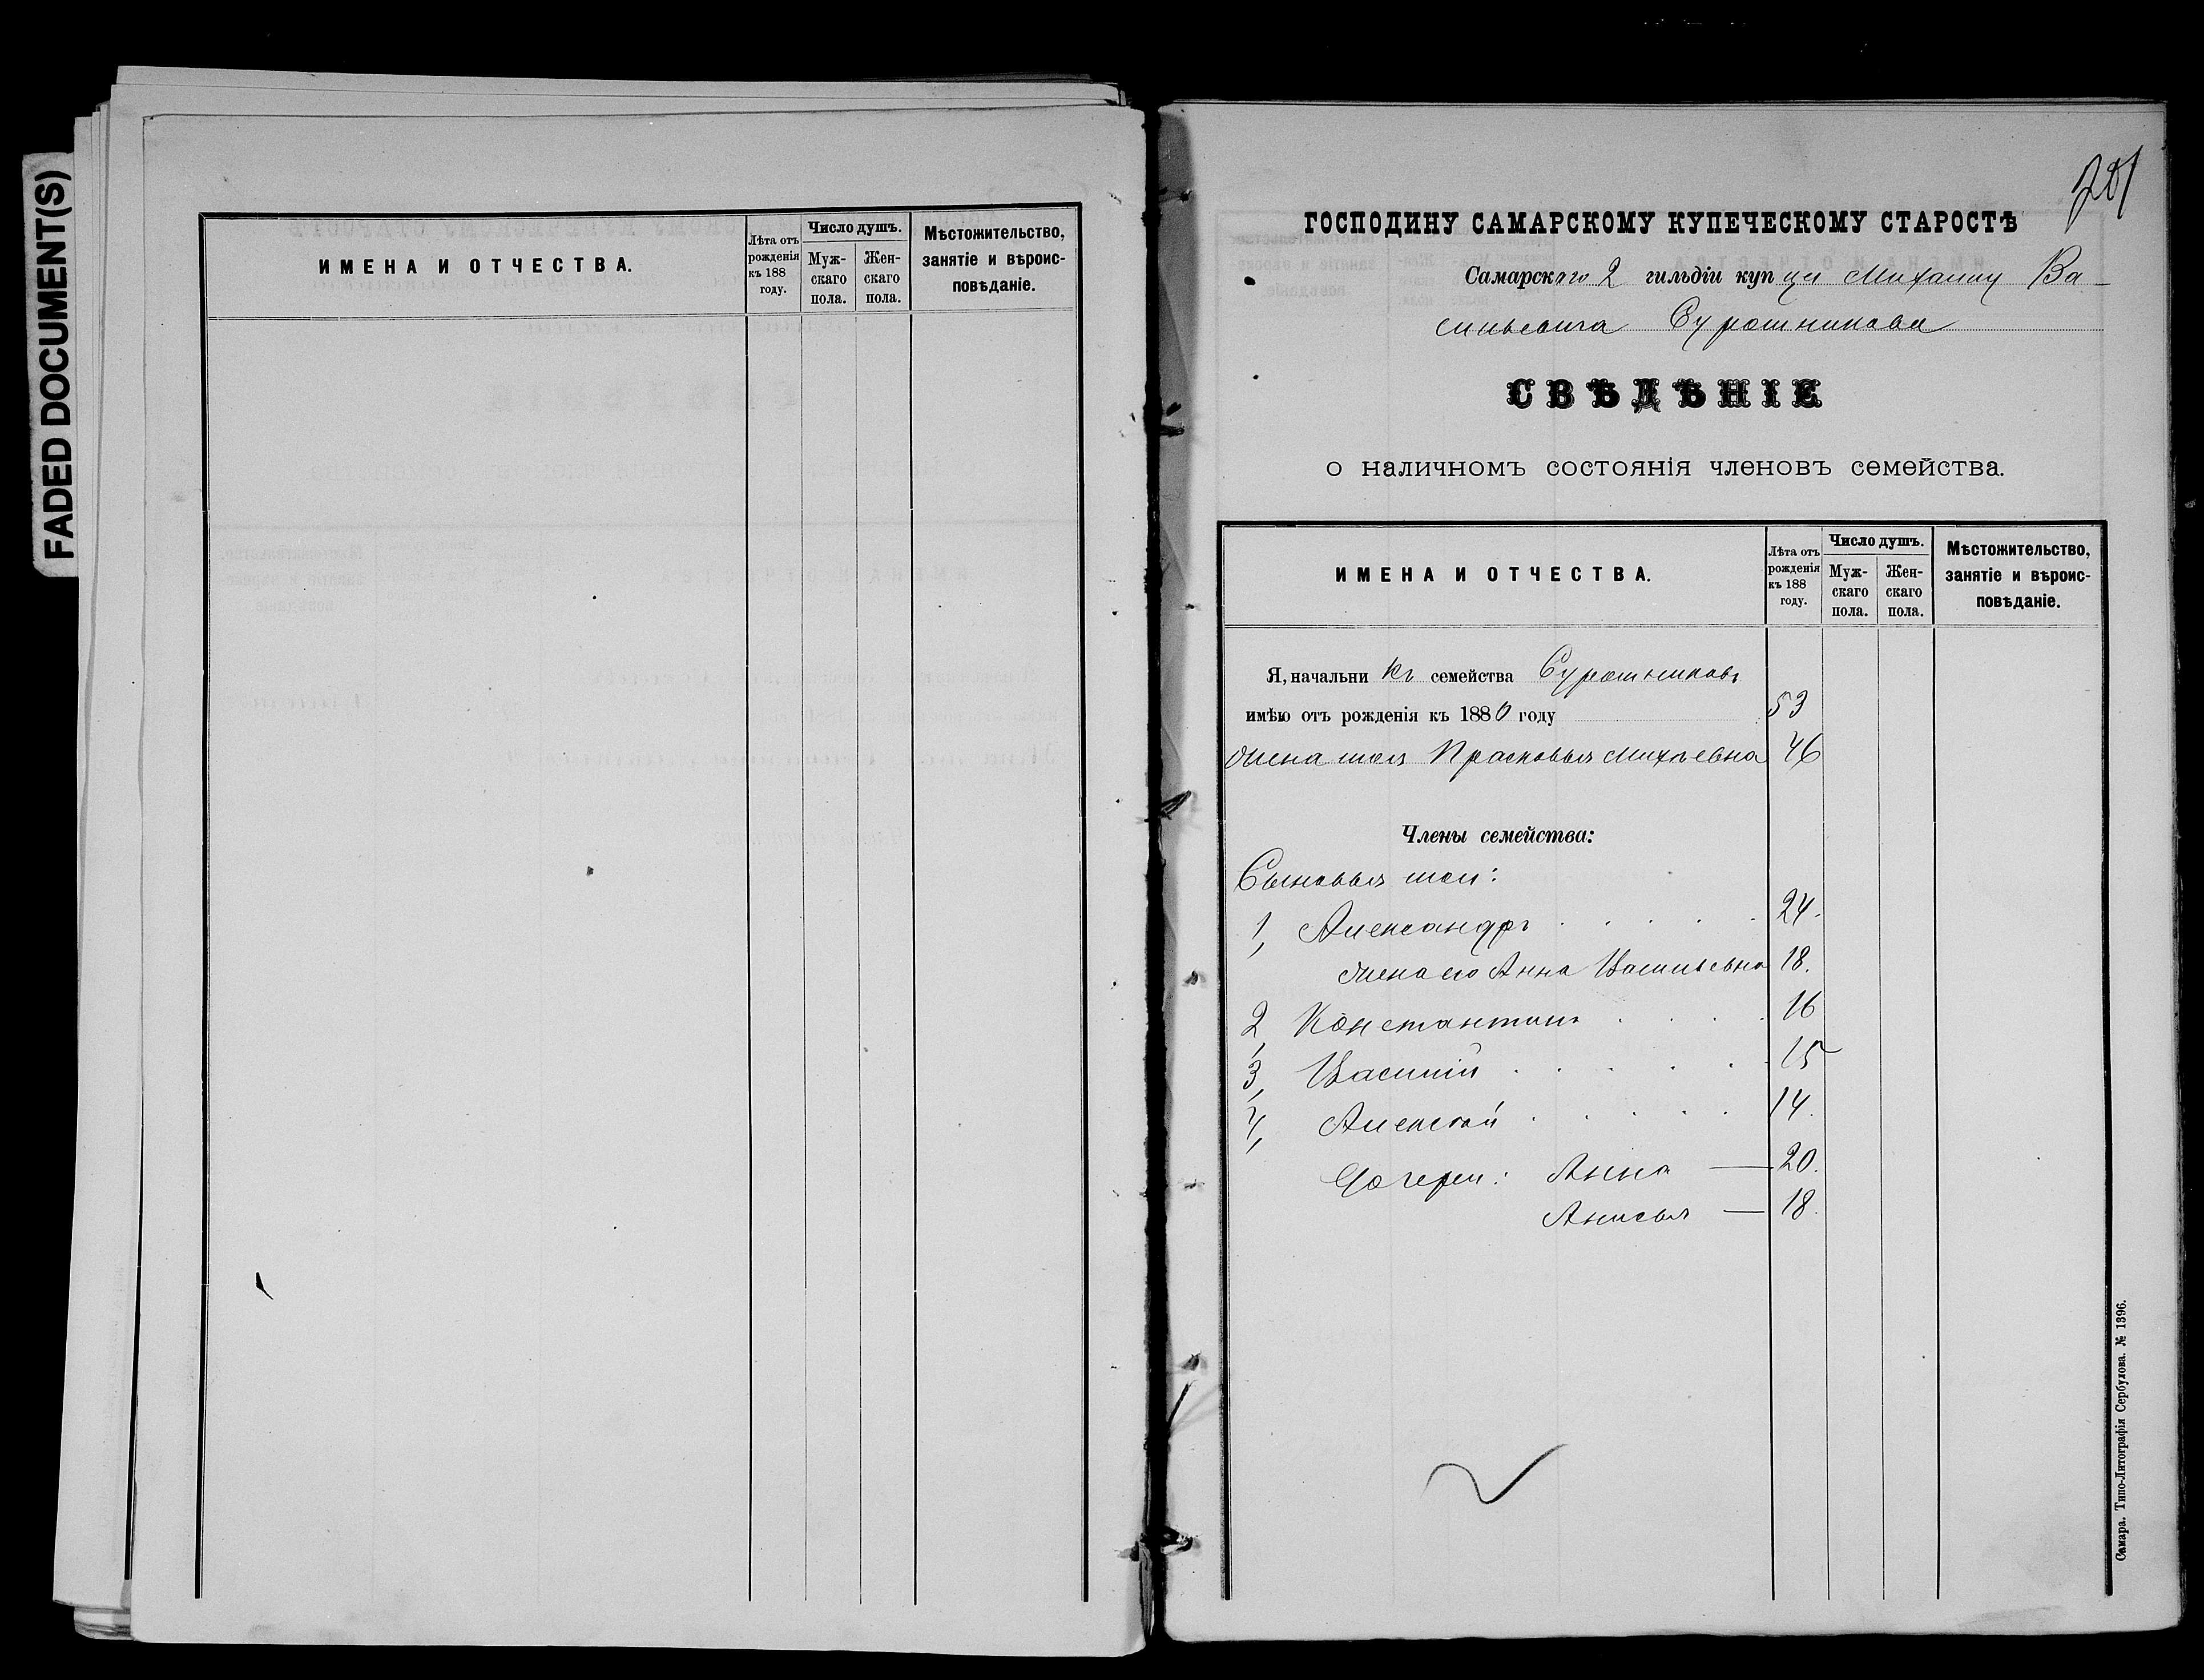 FADED DOCUMENT(S)
ИМЕНА И ОТЧЕСТВА.
Лѣта отъ рожденія къ 188 году.
Число душъ.
Муж-скаго пола.
Жен-скаго пола.
Мѣстожительство, занятіе и вѣроис-повѣданіе.
201
ГОСПОДИНУ САМАРСКОМУ КУПЕЧЕСКОМУ СТАРОСТѢ
Самарского 2 гильдіи купца Михаила Ва
сильевича Сурошникова
СВѢДѢНІЕ
о наличномъ состоянія членовъ семейства.
ИМЕНА И ОТЧЕСТВА.
Лѣта отъ рожденія къ 188 году.
Число душъ.
Муж-скаго пола.
Жен-скаго пола.
Мѣстожительство, занятіе и вѣроис-повѣданіе.
Я, начальникъ семейства Сурошниковъ
имѣю отъ рожденія къ 1880 году 53
жена моя Прасковья Михаевна 46
Члены семейства:
Сыновья мои:
1, Александръ 24.
жена его Анна Васильевна 18.
2, Константинъ 16
3, Василій 15
4, Алексѣй 14.
Дочери: Анна — 20.
Анисья — 18.
Самара. Типо-Литографія Сербулова. № 1396.